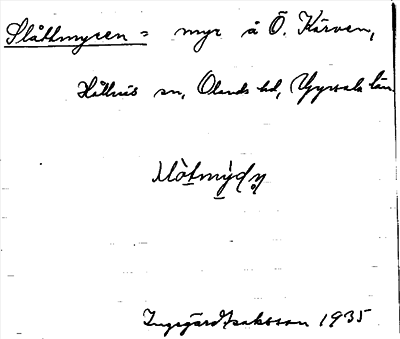 Slåttmyren = myr å Ö. Kärven,
Hållnäs sn, Olands hd, Uppsala län
Ingegärd Isaksson 1935